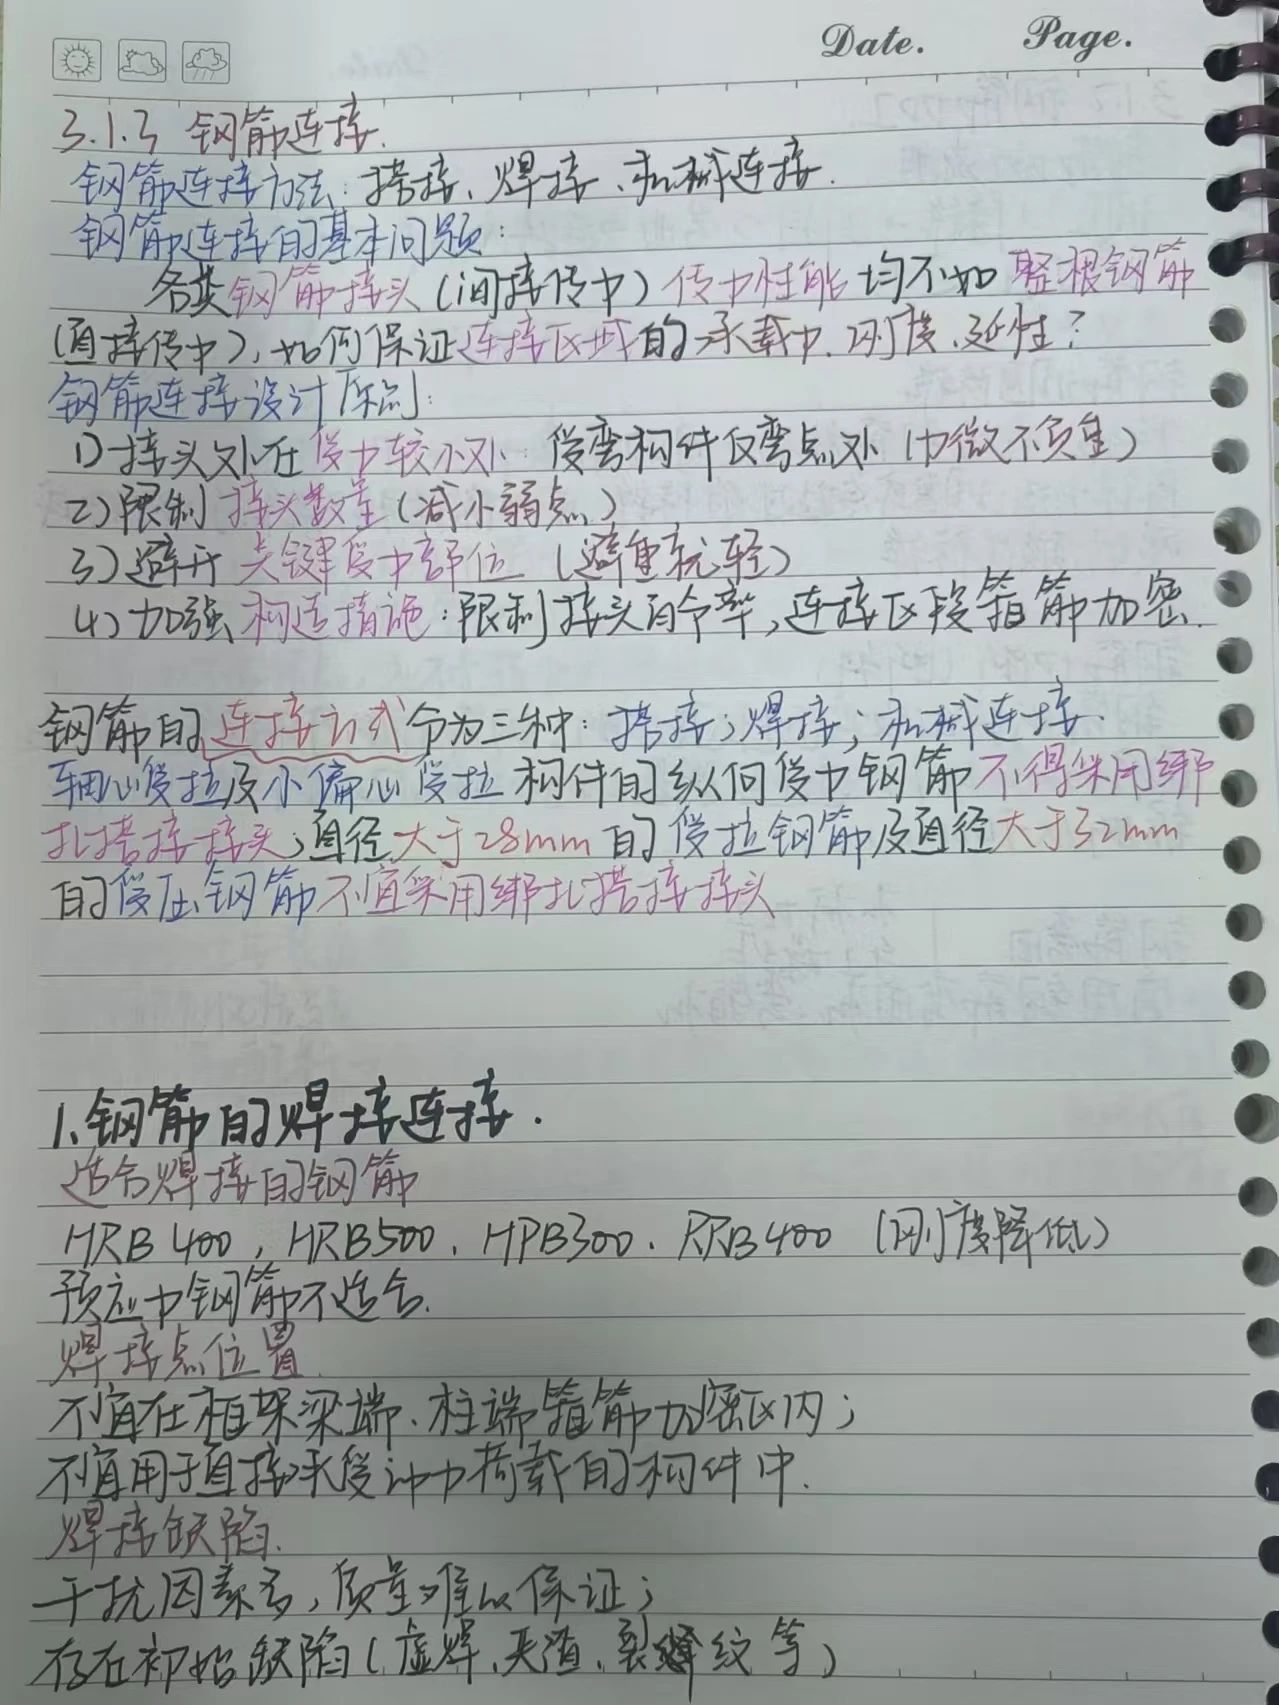 Date. Page.
3.1.3 钢筋连接.
钢筋连接方法:搭接、焊接、机械连接.
钢筋连接的基本问题:
各类钢筋接头(间接传力)传力性能均不如整根钢筋
(直接传力),如何保证连接区域的承载力、刚度、延性?
钢筋连接设计原则:
1)接头处在受力较小处 受弯构件反弯点处(力微不负重)
2)限制接头数量(减小弱点)
3)避开关键受力部位(避重就轻)
4)加强构造措施:限制接头百分率,连接区段箍筋加密.
钢筋的连接方式分为三种:搭接;焊接;机械连接.
轴心受拉及小偏心受拉构件的纵向受力钢筋不得采用绑
扎搭接接头;直径大于28mm的受拉钢筋及直径大于32mm
的受压钢筋不宜采用绑扎搭接接头
1、钢筋的焊接连接.
适合焊接的钢筋
HRB400、HRB500、HPB300、RRB400(刚度降低)
预应力钢筋不适合.
焊接点位置
不宜在框架梁端、柱端箍筋加密区内;
不宜用于直接承受冲力荷载的构件中.
焊接缺陷.
干扰因素多,质量难以保证;
存在初始缺陷(虚焊、夹渣、裂纹等)